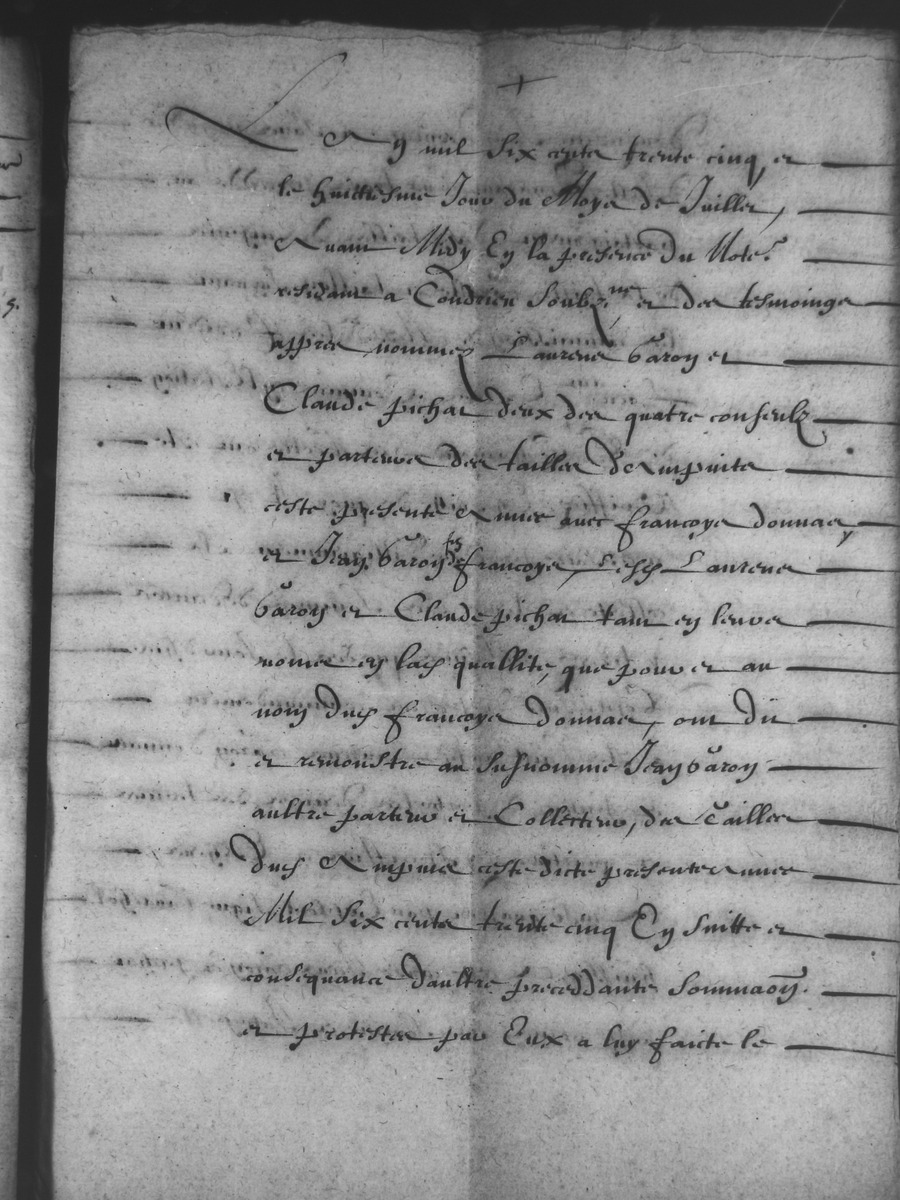 +
L An mil six centz trente cinq et
le huittiesme Jour du Moys de Juillet,
Avant Midy En la presence du Not.re
residant a Condrieu soubz.ne et des tesmoingz
appres nommez Laurens Varon et
Claude pichat deux des quatre consulz
et parteurs des tailles d'Ampuits
ceste presente Annee avec francoys donnat
et Jean Varon fz francoys, Lesd Laurens
Varon et Claude pichat tant en leurs
noms en lad quallite, que pour et au
nom dud francoys donnat, ont dit
et remonstre au susnomme Jean Varon
aultre parteur et Collecteur, des tailles
dud Ampuis ceste dicte presente Annee
Mil six centz trente cinq En suitte et
consequance d'aultre preceddante sommaon.
et protestes par Eux a luy faicte le